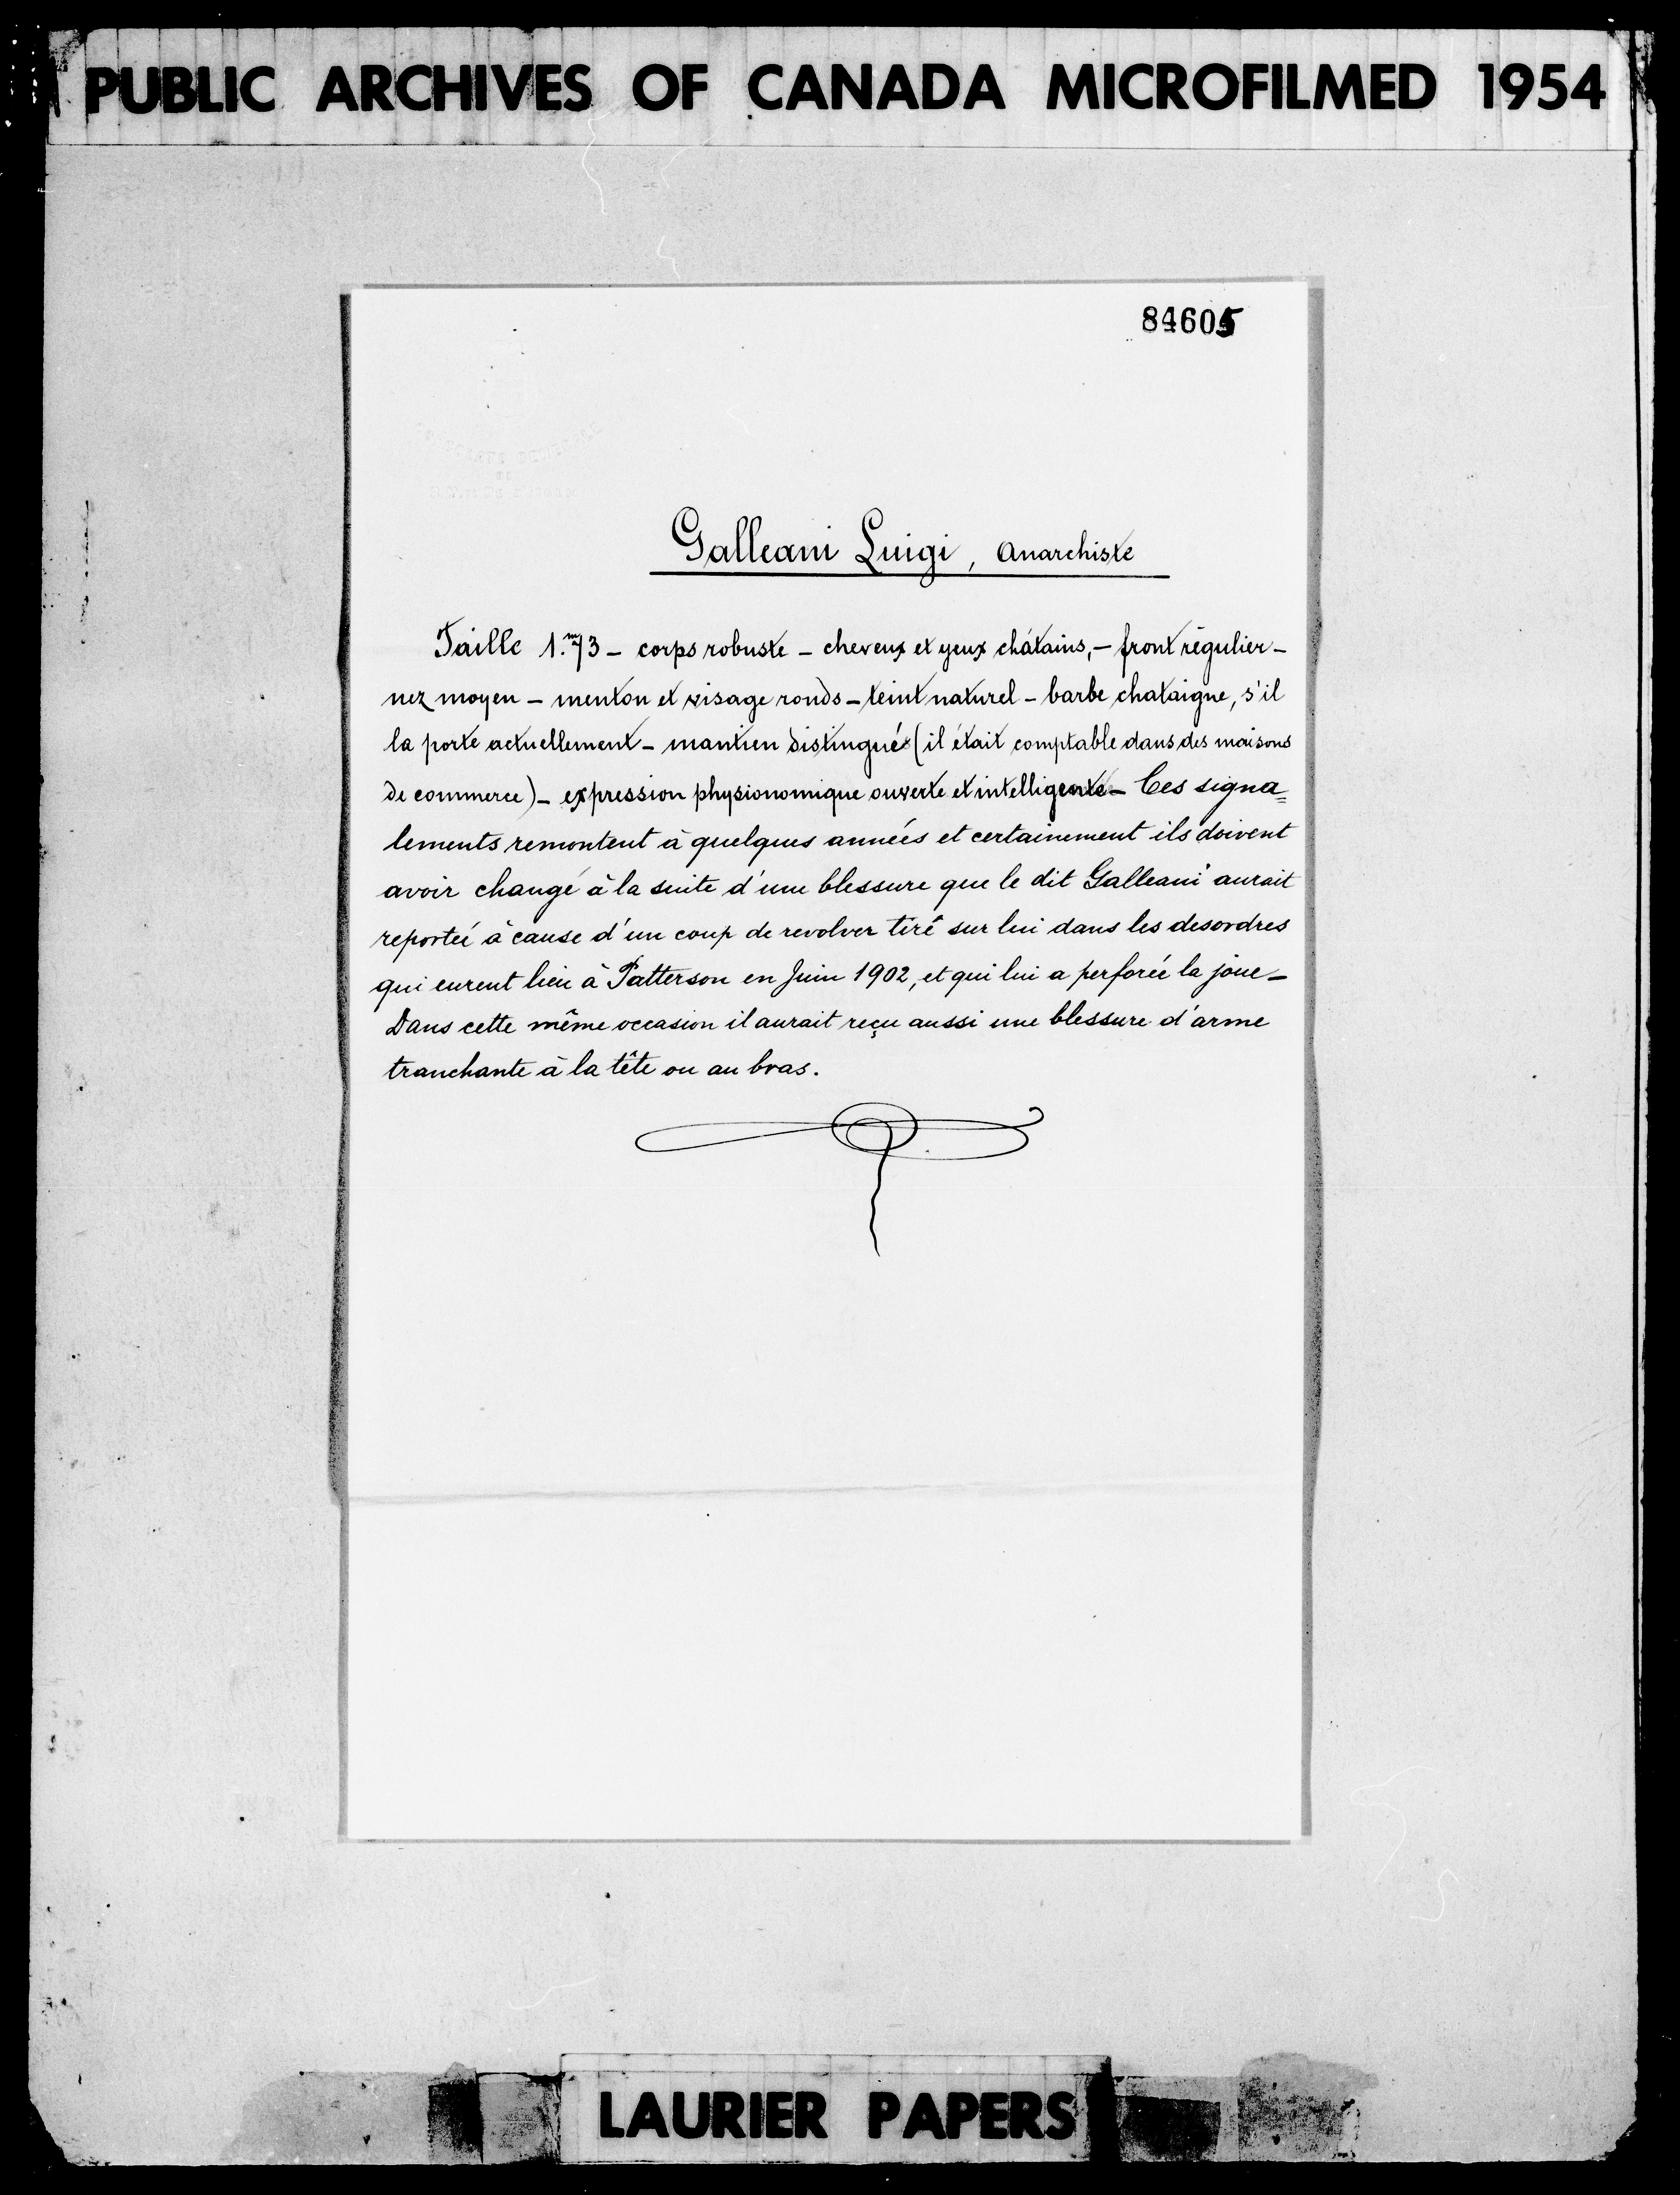 PUBLIC ARCHIVES OF CANADA MICROFILMED 1954
84605
Galleani Luigi, anarchiste
Taille 1.m73 – corps robuste – cheveux et yeux châtains, – front régulier –
nez moyen – menton et visage ronds – teint naturel – barbe chataigne, s'il
la porte actuellement – mantien distingué (il était comptable dans des maisons
de commerce) – expression physionomique ouverte et intelligente – Ces signa=
lements remontent à quelques années et certainement ils doivent
avoir changé à la suite d'une blessure que le dit Galleani aurait
reportée à cause d'un coup de revolver tiré sur lui dans les desordres
qui eurent lieu à Patterson en Juin 1902, et qui lui a perforée la joue –
Dans cette même occasion il aurait reçu aussi une blessure d'arme
tranchante à la tête ou au bras.
LAURIER PAPERS